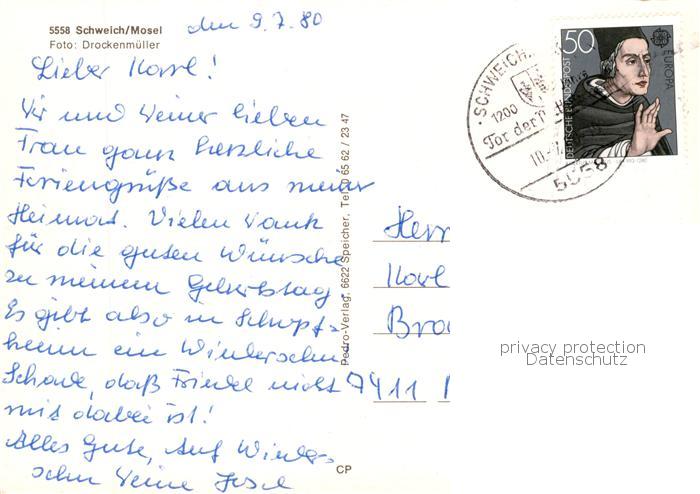 5558 Schweich/Mosel
Foto: Drockenmüller
den 9.7.80
Lieber Karl!
Dir und Deiner lieben
Frau ganz herzliche
Feriengrüße aus meiner
Heimat. Vielen Dank
für die guten Wünsche
zu meinem Geburtstag.
Es gibt also in Schopf-
heim ein Wiedersehn.
Schade, daß Friedel nicht
mit dabei ist!
Alles Gute, Auf Wieder-
sehn Deine
CP
Pedro-Verlag, 6622 Speicher, Tel. 0 65 62 / 23 47
50
DEUTSCHE BUNDESPOST
EUROPA
SCHWEICH
1200
Tor der
10.
5558
Herr
Karl
Bra
7411
privacy protection
Datenschutz